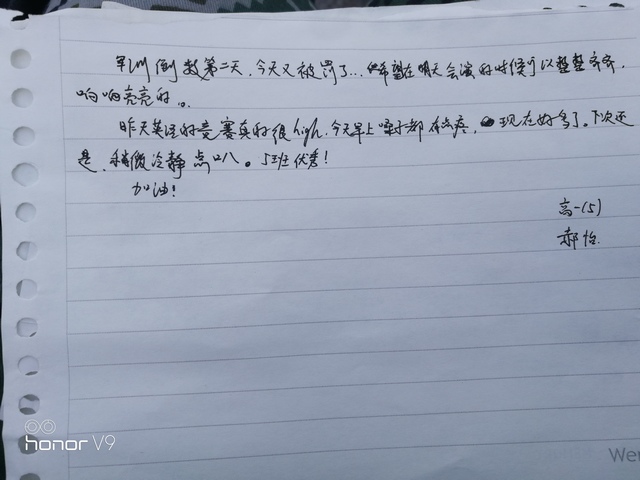 军训倒数第二天，今天又被罚了...希望在明天会演的时候可以整整齐齐，
响响亮亮的。
昨天英语的竞赛真的很high，今天早上嗓子都有点疼，现在好多了。下次还
是，稍微冷静点叭。5班优秀！
加油！
高一(5)
郝怡
honor V9
Wer